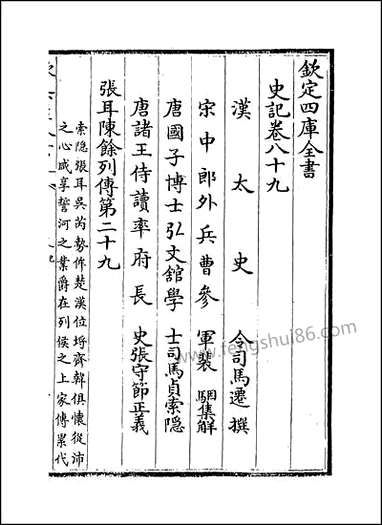 欽定四庫全書
史記卷八十九
漢太史令司馬遷撰
宋中郎外兵曹參軍裴駰集解
唐國子博士弘文館學士司馬貞索隱
唐諸王侍讀率府長史張守節正義
張耳陳餘列傳第二十九
索隱張耳吳芮勢侔楚漢位埒齊韓俱懷從沛
之心咸享誓河之業爵在列侯之上家傳累代
www.fengshui86.com